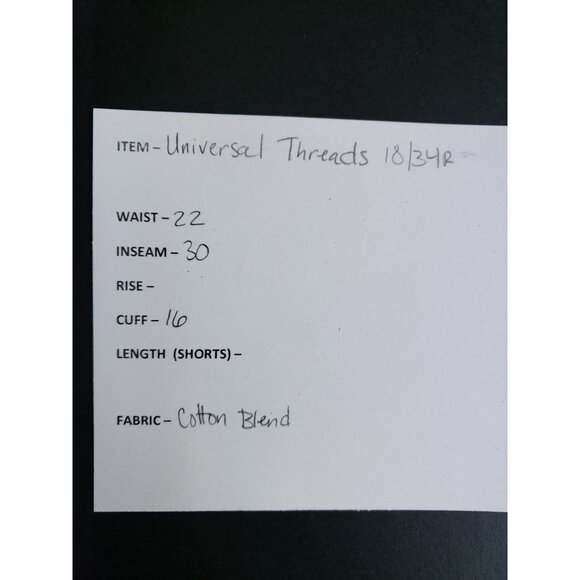 ITEM – Universal Threads 18/34R
WAIST – 22
INSEAM – 30
RISE –
CUFF – 16
LENGTH (SHORTS) –
FABRIC – Cotton Blend